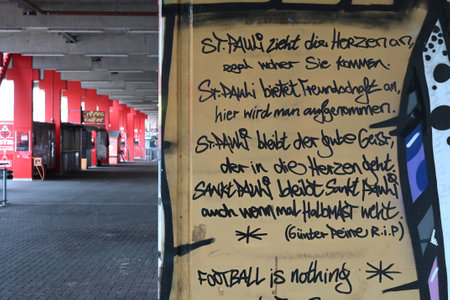 ST. PAULi zieht die HERZEN an,
egal woher Sie kommen.
ST. PAULi bietet Freundschaft an,
hier wird man aufgenommen.
ST. PAULi bleibt der gute Geist,
der in die HERZEN geht.
SANKT PAULi bleibt SANKT PAULi
auch wenn mal HALBMAST weht.
(Günter Peine R.i.P)
FOOTBALL is nothing